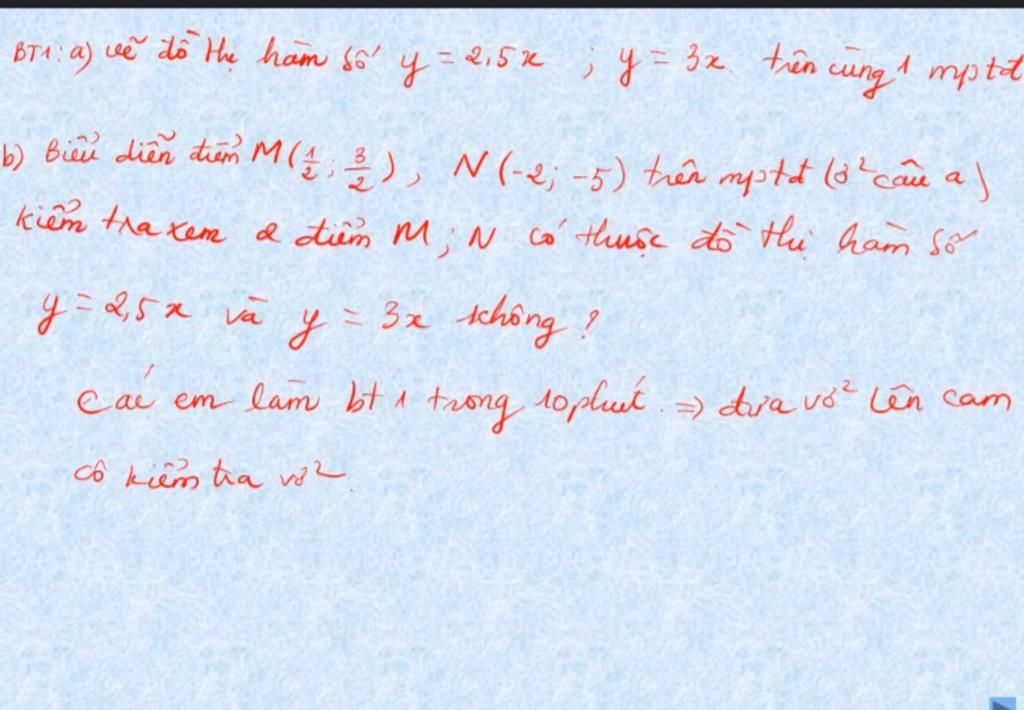 BT1: a) vẽ đồ thị hàm số y = 2,5x ; y = 3x trên cùng 1 mptđ
b) Biểu diễn điểm M(1/2; 3/2), N(-2; -5) trên mptđ (ở câu a)
kiểm tra xem 2 điểm M; N có thuộc đồ thị hàm số
y = 2,5x và y = 3x không?
Các em làm bt 1 trong 10 phút. => đưa vở lên cam
cô kiểm tra vở.